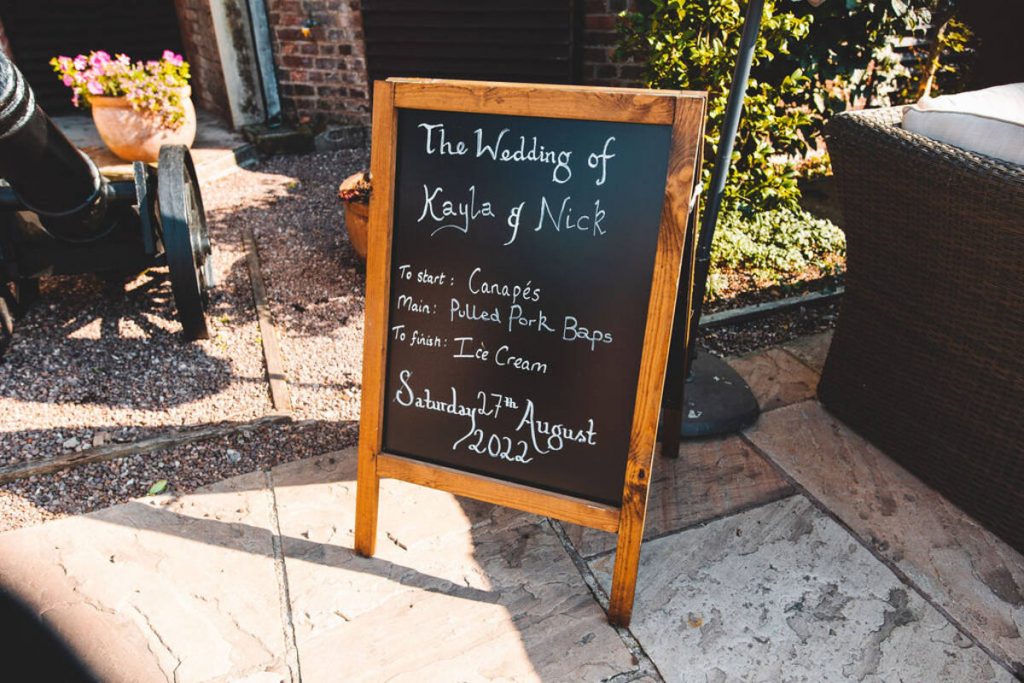 The Wedding of
Kayla & Nick
To start: Canapés
Main: Pulled Pork Baps
To finish: Ice Cream
Saturday 27th August
2022